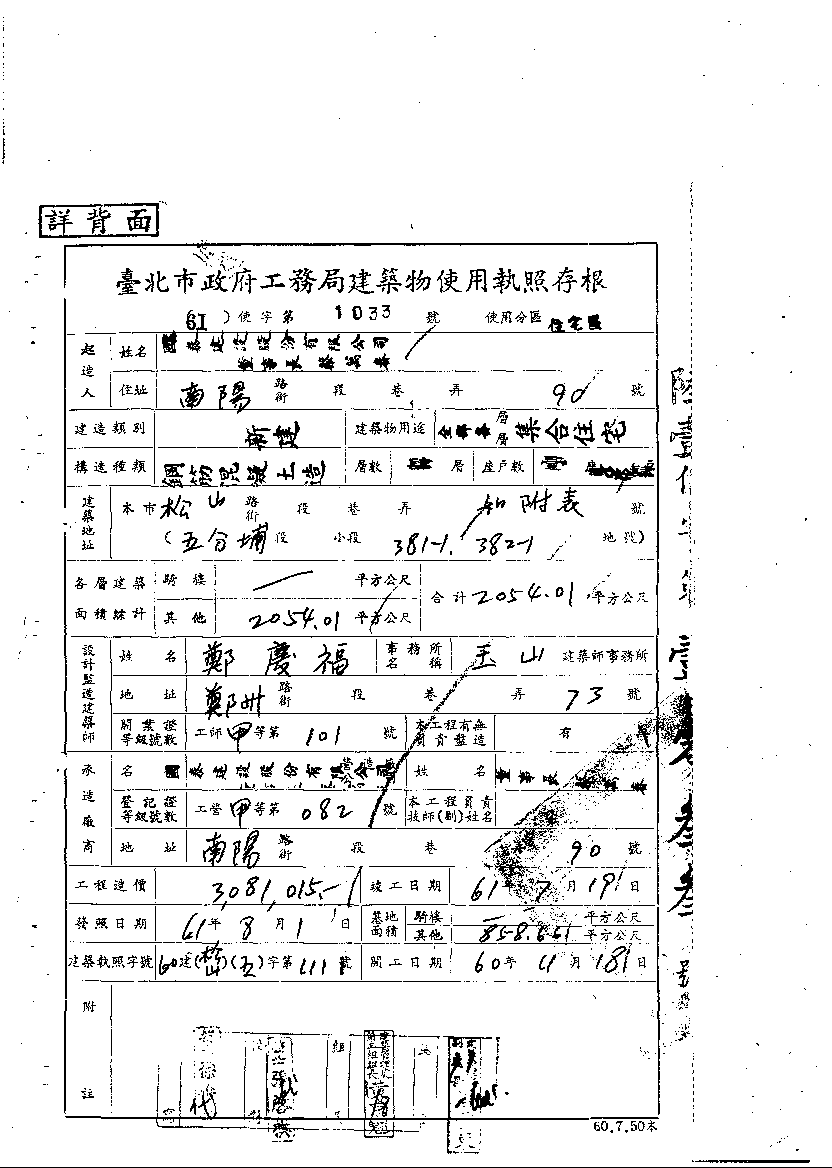 詳背面
臺北市政府工務局建築物使用執照存根
(61)使字第1033號 使用分區 住宅區
起造人 姓名 國泰建設股份有限公司
董事長蔡萬春
住址 南陽 路街 段 巷 弄 90 號
建造類別 新建 建築物用途 層層 集合住宅
構造種類 鋼筋混凝土造 層數 層 座戶數
建築地址 本市 松山 路街 段 巷 弄 如附表 號
(五分埔 段 小段 381-1. 382-1 地號)
各層建築面積綜計 騎樓 — 平方公尺 合計 2054.01 平方公尺
其他 2054.01 平方公尺
設計監造建築師 姓名 鄭慶福 事務所名稱 玉山 建築師事務所
地址 鄭州 路街 段 巷 弄 73 號
開業證等級號數 工師 甲 等第 101 號 本工程有無負責監造 有
承造廠商 名 國泰建設股份有限公司 姓名 董事長
登記證等級號數 工營 甲 等第 082 號 本工程負責技師(副)姓名
地址 南陽 路街 段 巷 90 號
工程造價 3,081,015.- 竣工日期 61年7月19日
發照日期 61年8月1日 基地面積 騎樓 — 平方公尺
其他 平方公尺
建築執照字號 60建(松山)(五)字第111號 開工日期 60年11月18日
附註
60.7.50本